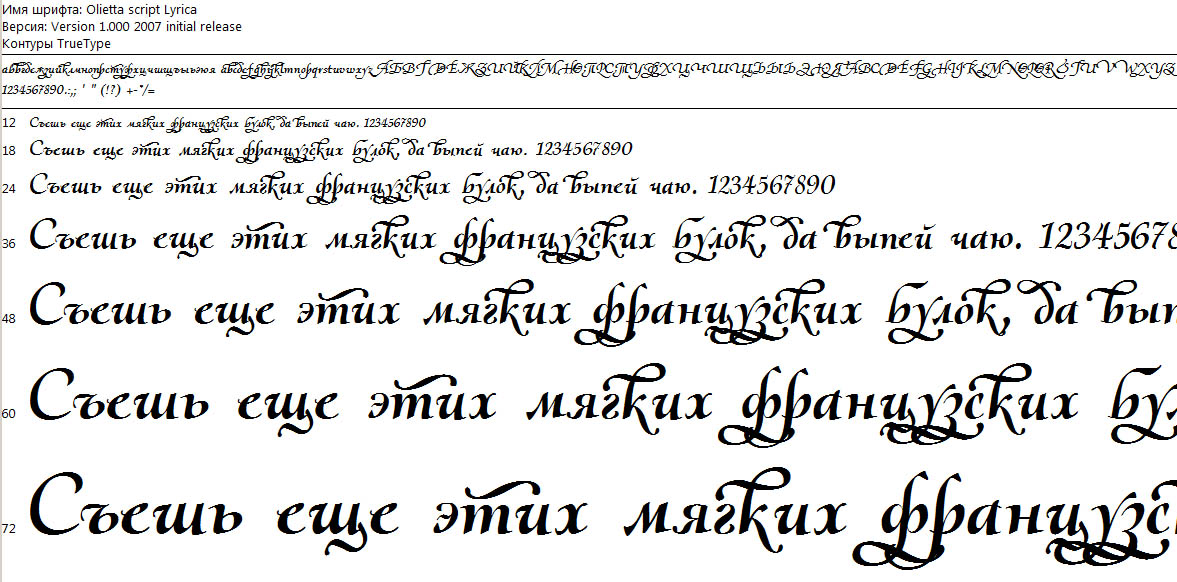 Имя шрифта: Olietta script Lyrica
Версия: Version 1.000 2007 initial release
Контуры TrueType
абвгдежзийклмнопрстуфхцчшщъыьэюя abcdefghijklmnopqrstuvwxyz АБВГДЕЖЗИЙКЛМНОПРСТУФХЦЧШЩЪЫЬЭЮЯ ABCDEFGHIJKLMNOPQRSTUVWXYZ
1234567890.:,; ' " (!?) +-*/=
12 Съешь еще этих мягких французских булок, да выпей чаю. 1234567890
18 Съешь еще этих мягких французских булок, да выпей чаю. 1234567890
24 Съешь еще этих мягких французских булок, да выпей чаю. 1234567890
36 Съешь еще этих мягких французских булок, да выпей чаю. 12345678
48 Съешь еще этих мягких французских булок, да вып
60 Съешь еще этих мягких французских бу
72 Съешь еще этих мягких французс